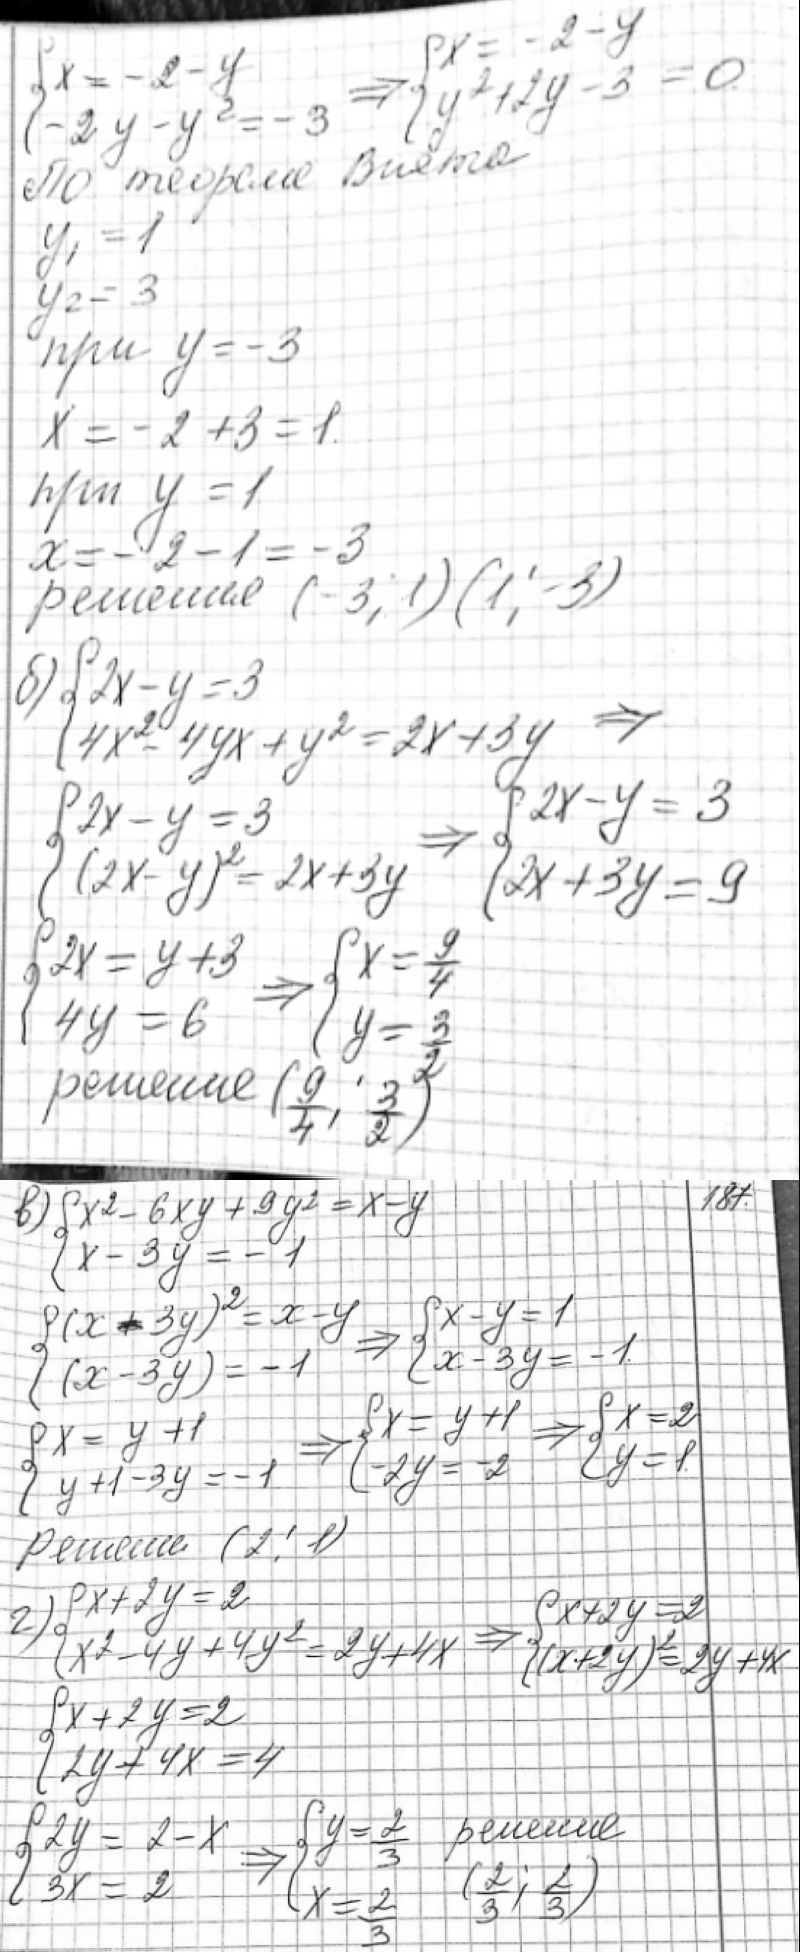 {x = -2 - y   ⇒   {x = -2 - y
{-2y - y² = -3   {y² + 2y - 3 = 0.
По теореме Виета
y₁ = 1
y₂ = 3
при y = -3
x = -2 + 3 = 1.
при y = 1
x = -2 - 1 = -3
решение (-3; 1) (1; -3)
б) {2x - y = 3
{4x² - 4yx + y² = 2x + 3y ⇒
{2x - y = 3   ⇒   {2x - y = 3
{(2x - y)² = 2x + 3y   {2x + 3y = 9
{2x = y + 3   ⇒   {x = 9/4
{4y = 6   {y = 3/2
решение (9/4; 3/2)
в) {x² - 6xy + 9y² = x - y   187.
{x - 3y = -1
{(x - 3y)² = x - y   ⇒   {x - y = 1
{(x - 3y) = -1   {x - 3y = -1.
{x = y + 1   ⇒   {x = y + 1   ⇒   {x = 2
{y + 1 - 3y = -1   {-2y = -2   {y = 1.
решение (2; 1)
г) {x + 2y = 2   ⇒   {x + 2y = 2
{x² - 4y + 4y² = 2y + 4x   {(x + 2y)² = 2y + 4x
{x + 2y = 2
{2y + 4x = 4
{2y = 2 - x   ⇒   {y = 2/3   решение
{3x = 2   {x = 2/3   (2/3; 2/3)